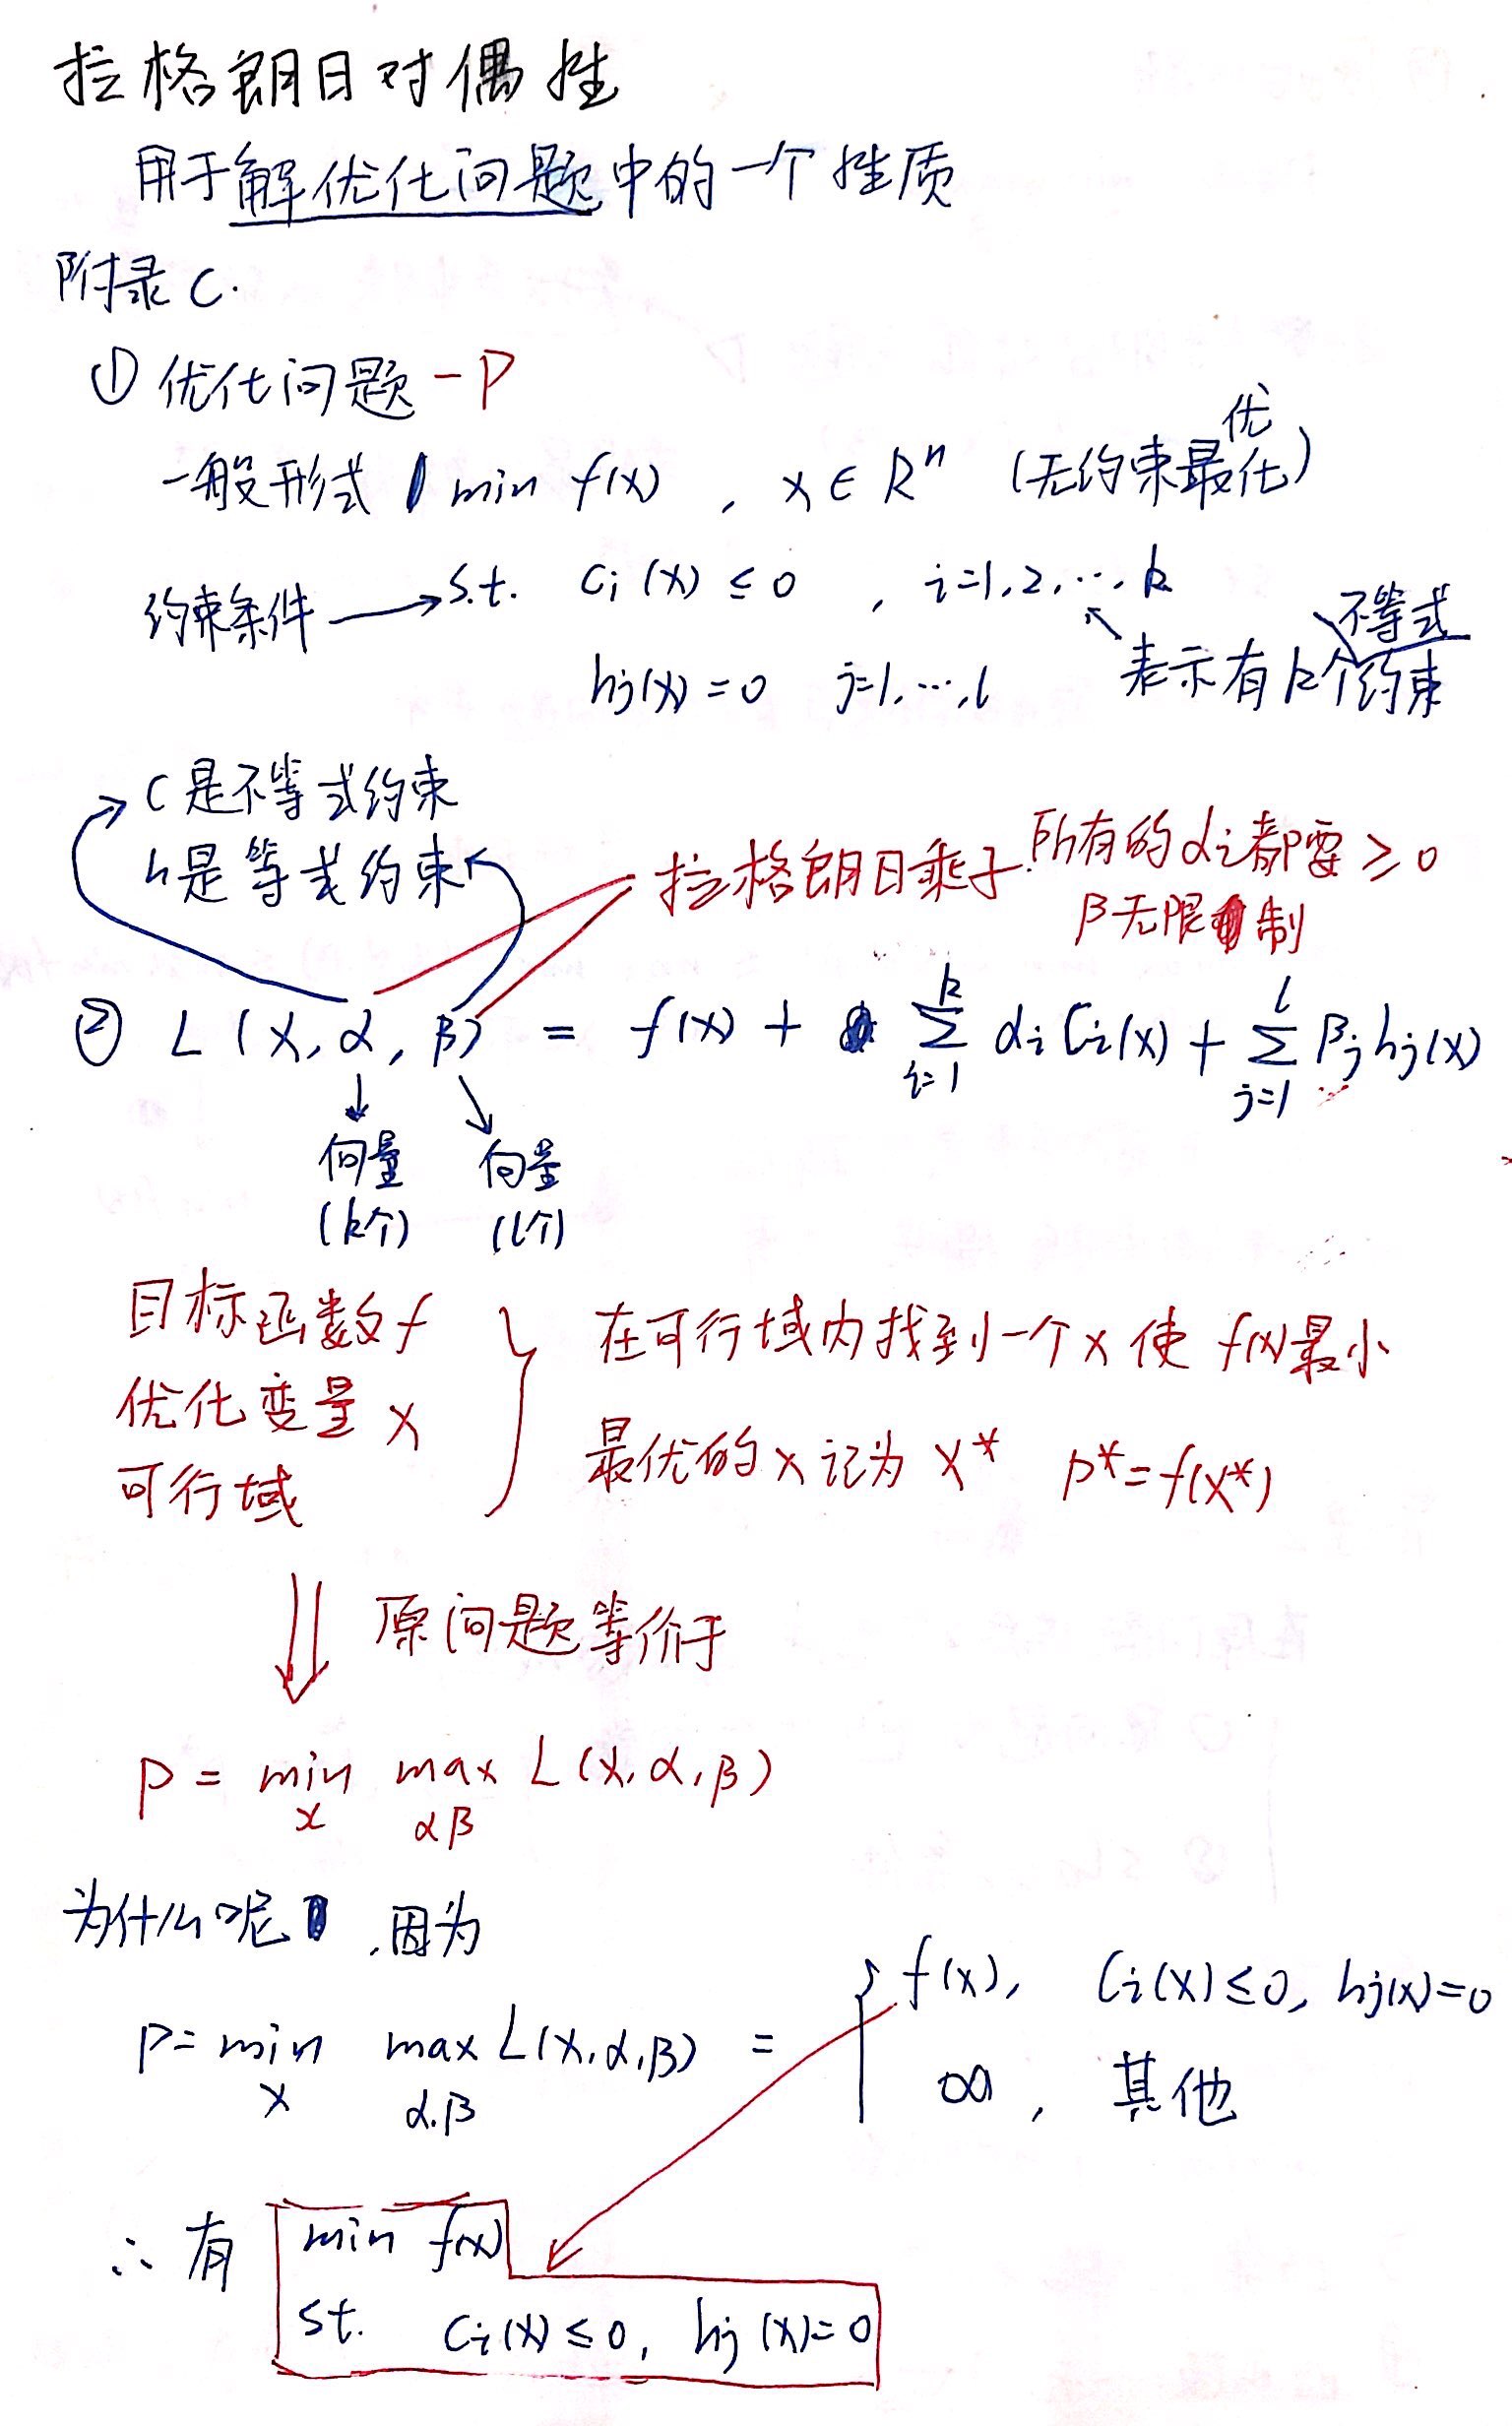 拉格朗日对偶性
用于解优化问题中的一个性质
附录 C.
① 优化问题 - P
一般形式 min f(x) , x ∈ Rⁿ (无约束最优化)
约束条件 → s.t. Ci(x) ≤ 0 , i=1,2,…,k
hj(x) = 0 j=1,…,l
表示有k个不等式约束
C是不等式约束
h是等式约束
拉格朗日乘子. 所有的αi都要 ≥ 0
β无限制
② L(x, α, β) = f(x) + Σ_{i=1}^{k} αi Ci(x) + Σ_{j=1}^{l} βj hj(x)
↓ ↘
向量 向量
(k个) (l个)
目标函数 f
优化变量 x
可行域
} 在可行域内找到一个 x 使 f(x)最小
最优的 x 记为 x* p*=f(x*)
⇓ 原问题等价于
P = min_x max_{αβ} L(x,α,β)
为什么呢 ,因为
P = min_x max_{α.β} L(x,α,β) = { f(x), Ci(x)≤0, hj(x)=0
∞ , 其他
∴ 有 min f(x)
st. Ci(x) ≤ 0, hj(x)=0